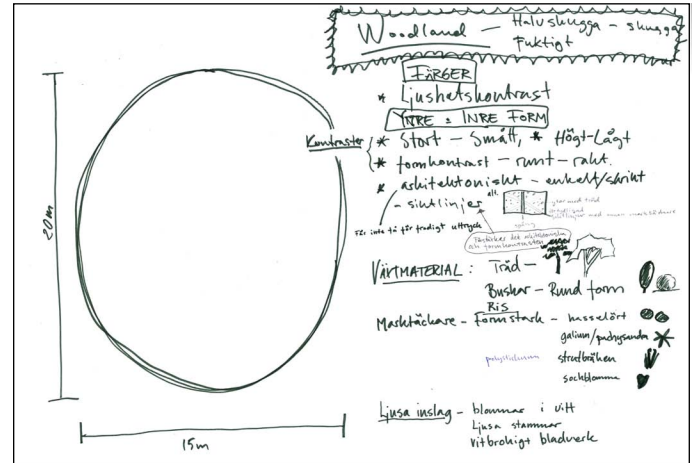 Woodland — Halvskugga - skugga
Fuktigt
FÄRGER
* Ljushetskontrast
YTTRE & INRE FORM
Kontraster
* Stort - Smått, * Högt-Lågt
* formkontrast - runt - rakt.
* arkitektoniskt - enkelt/strikt
- siktlinjer
alt.
ytor med träd
För inte få för trädigt uttryck
Förstärker det arkitektoniska
och formkontrasten
20m
VÄXTMATERIAL: Träd -
Buskar - Rund form
Ris
Marktäckare - Formstark - hasselört
galium/pachysandra
strutbräken
sockblomma
Ljusa inslag - blommar i vitt
Ljusa stammar
vitbrokigt bladverk
15m